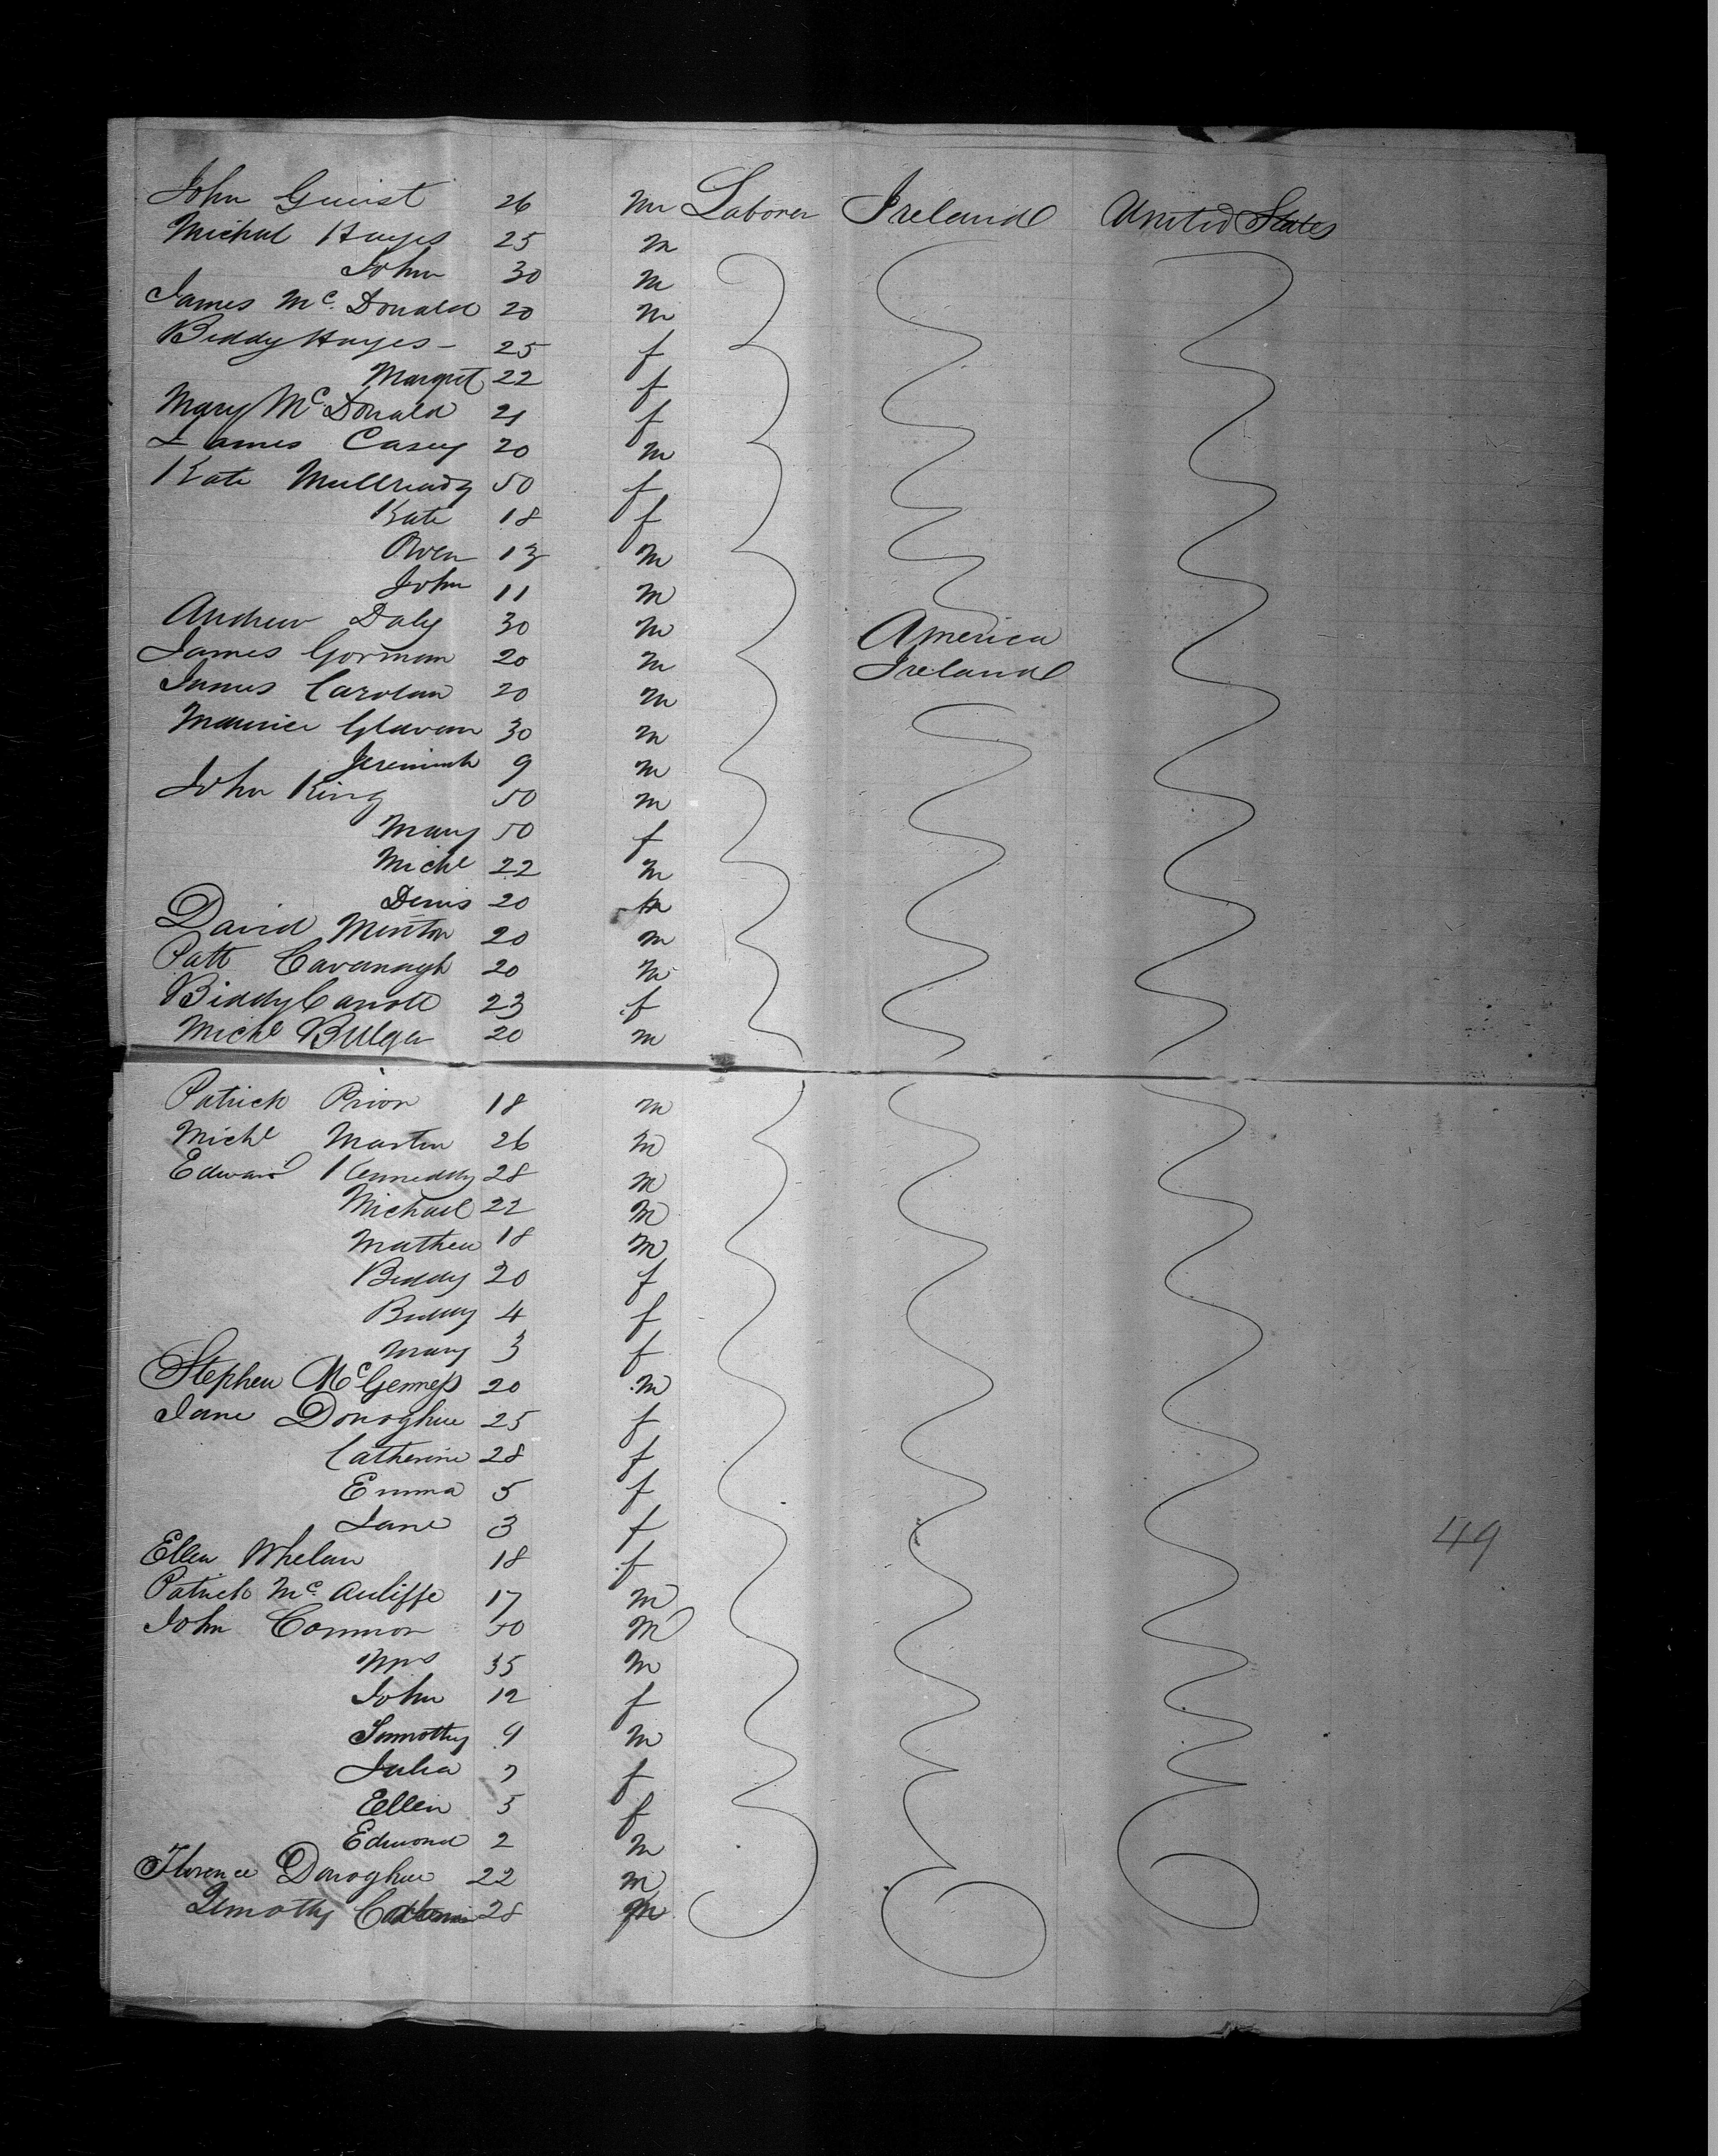 John Guiist 26 m Laborer Ireland United States
Michal Hayes 25 m
John 30 m
James Mc Donald 20 m
Biddy Hayes - 25 f
Margret 22 f
Mary Mc Donald 21 f
James Casey 20 m
Kate Mullready 50 f
Kate 18 f
Owen 13 m
John 11 m
Andrew Daly 30 m America
James Gorman 20 m Ireland
James Carolan 20 m
Maurice Glavan 30 m
Jeremiah 9 m
John King 50 m
Mary 50 f
Michl 22 m
Denis 20 m
David Minton 20 m
Patt Cavanagh 20 m
Biddy Carroll 23 f
Michl Bulger 20 m
Patrick Prior 18 m
Michl Martin 26 m
Edward Kenneddy 28 m
Michael 22 m
Mathew 18 m
Biddy 20 f
Biddy 4 f
Mary 3 f
Stephen McGenness 20 m
Jane Donoghue 25 f
Catherine 28 f
Emma 5 f
Jane 3 f
Ellen Whelan 18 f
49
Patrick Mc Auliffe 17 m
John Connor 50 m
Mrs 35 m
John 12 f
Timmothy 9 m
Julia 7 f
Ellen 5 f
Edmond 2 m
Florence Donoghue 22 m
Timothy 28 m